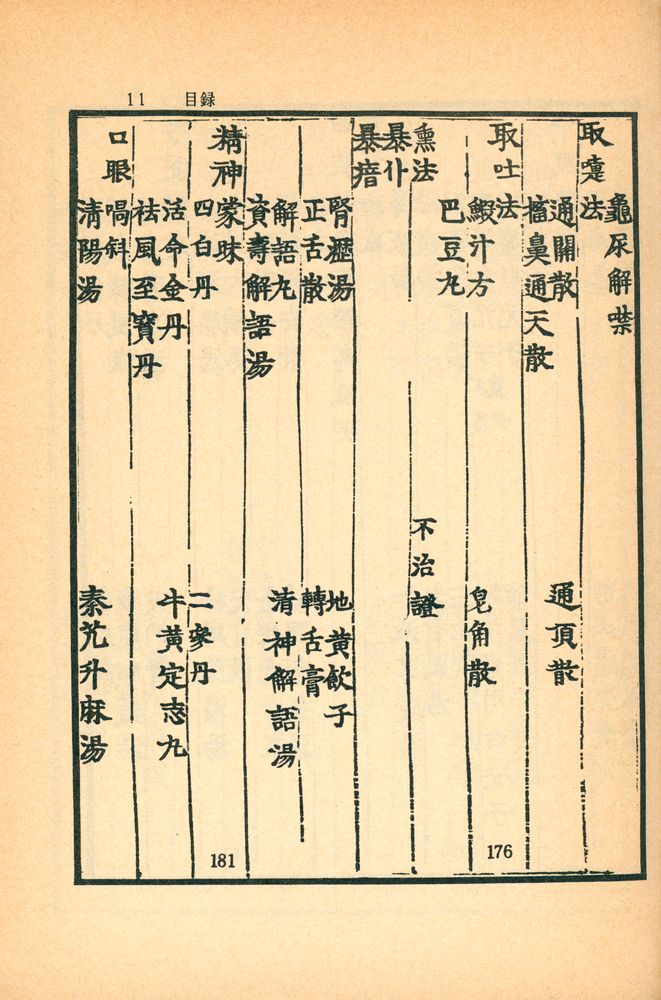 11 目録
龜尿解噤
取嚏法
通關散 通頂散
搐鼻通天散
取吐法 176
鰕汁方 皂角散
巴豆丸
熏法 不治證
暴仆
暴瘖
腎瀝湯 地黃飮子
正舌散 轉舌膏
解語丸 清神解語湯
資壽解語湯
精神蒙昧 181
四白丹 二參丹
活命金丹 牛黃定志丸
祛風至寶丹
口眼喎斜
清陽湯 秦艽升麻湯